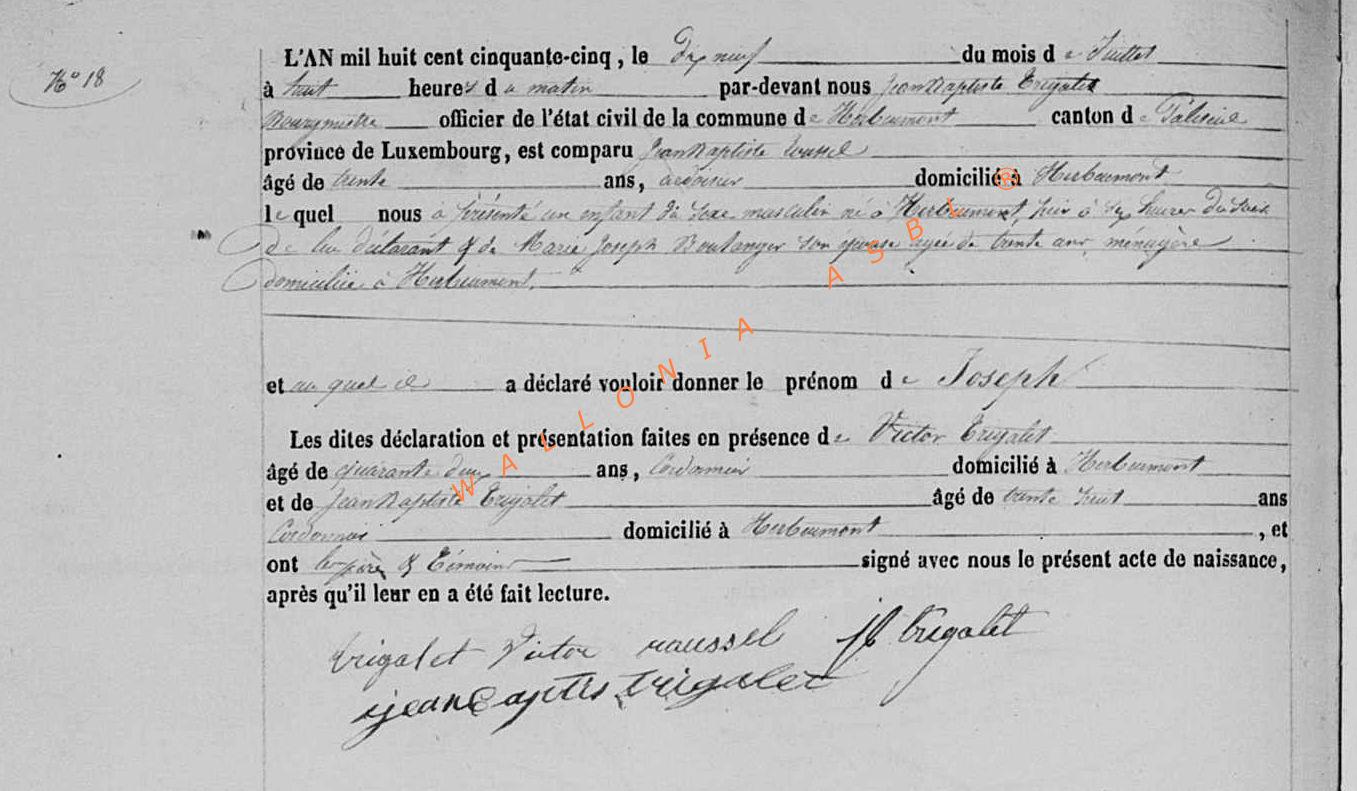 N° 18
L'AN mil huit cent cinquante-cinq, le Dix neuf du mois de Juillet
à huit heures du matin par-devant nous Jean Baptiste Trigalet
Bourgmestre officier de l'état civil de la commune de Herbeumont canton de Paliseul
province de Luxembourg, est comparu Jean Baptiste Roussel
âgé de trente ans, ardoisier domicilié à Herbeumont
le quel nous a présenté un enfant du sexe masculin né à Herbeumont, hier à six heures du soir
de lui déclarant & de Marie Joseph Boulanger son épouse agée de trente ans, ménagère
domiciliée à Herbeumont.
et au quel il a déclaré vouloir donner le prénom de Joseph
Les dites déclaration et présentation faites en présence de Victor Trigalet
âgé de quarante deux ans, Cordonnier domicilié à Herbeumont
et de Jean Baptiste Trigalet âgé de trente huit ans
Cordonnier domicilié à Herbeumont, et
ont les père & Témoins signé avec nous le présent acte de naissance,
après qu'il leur en a été fait lecture.
trigalet Victor roussel JB trigalet
jean baptiste trigalet
WALLONIA ASBL ®